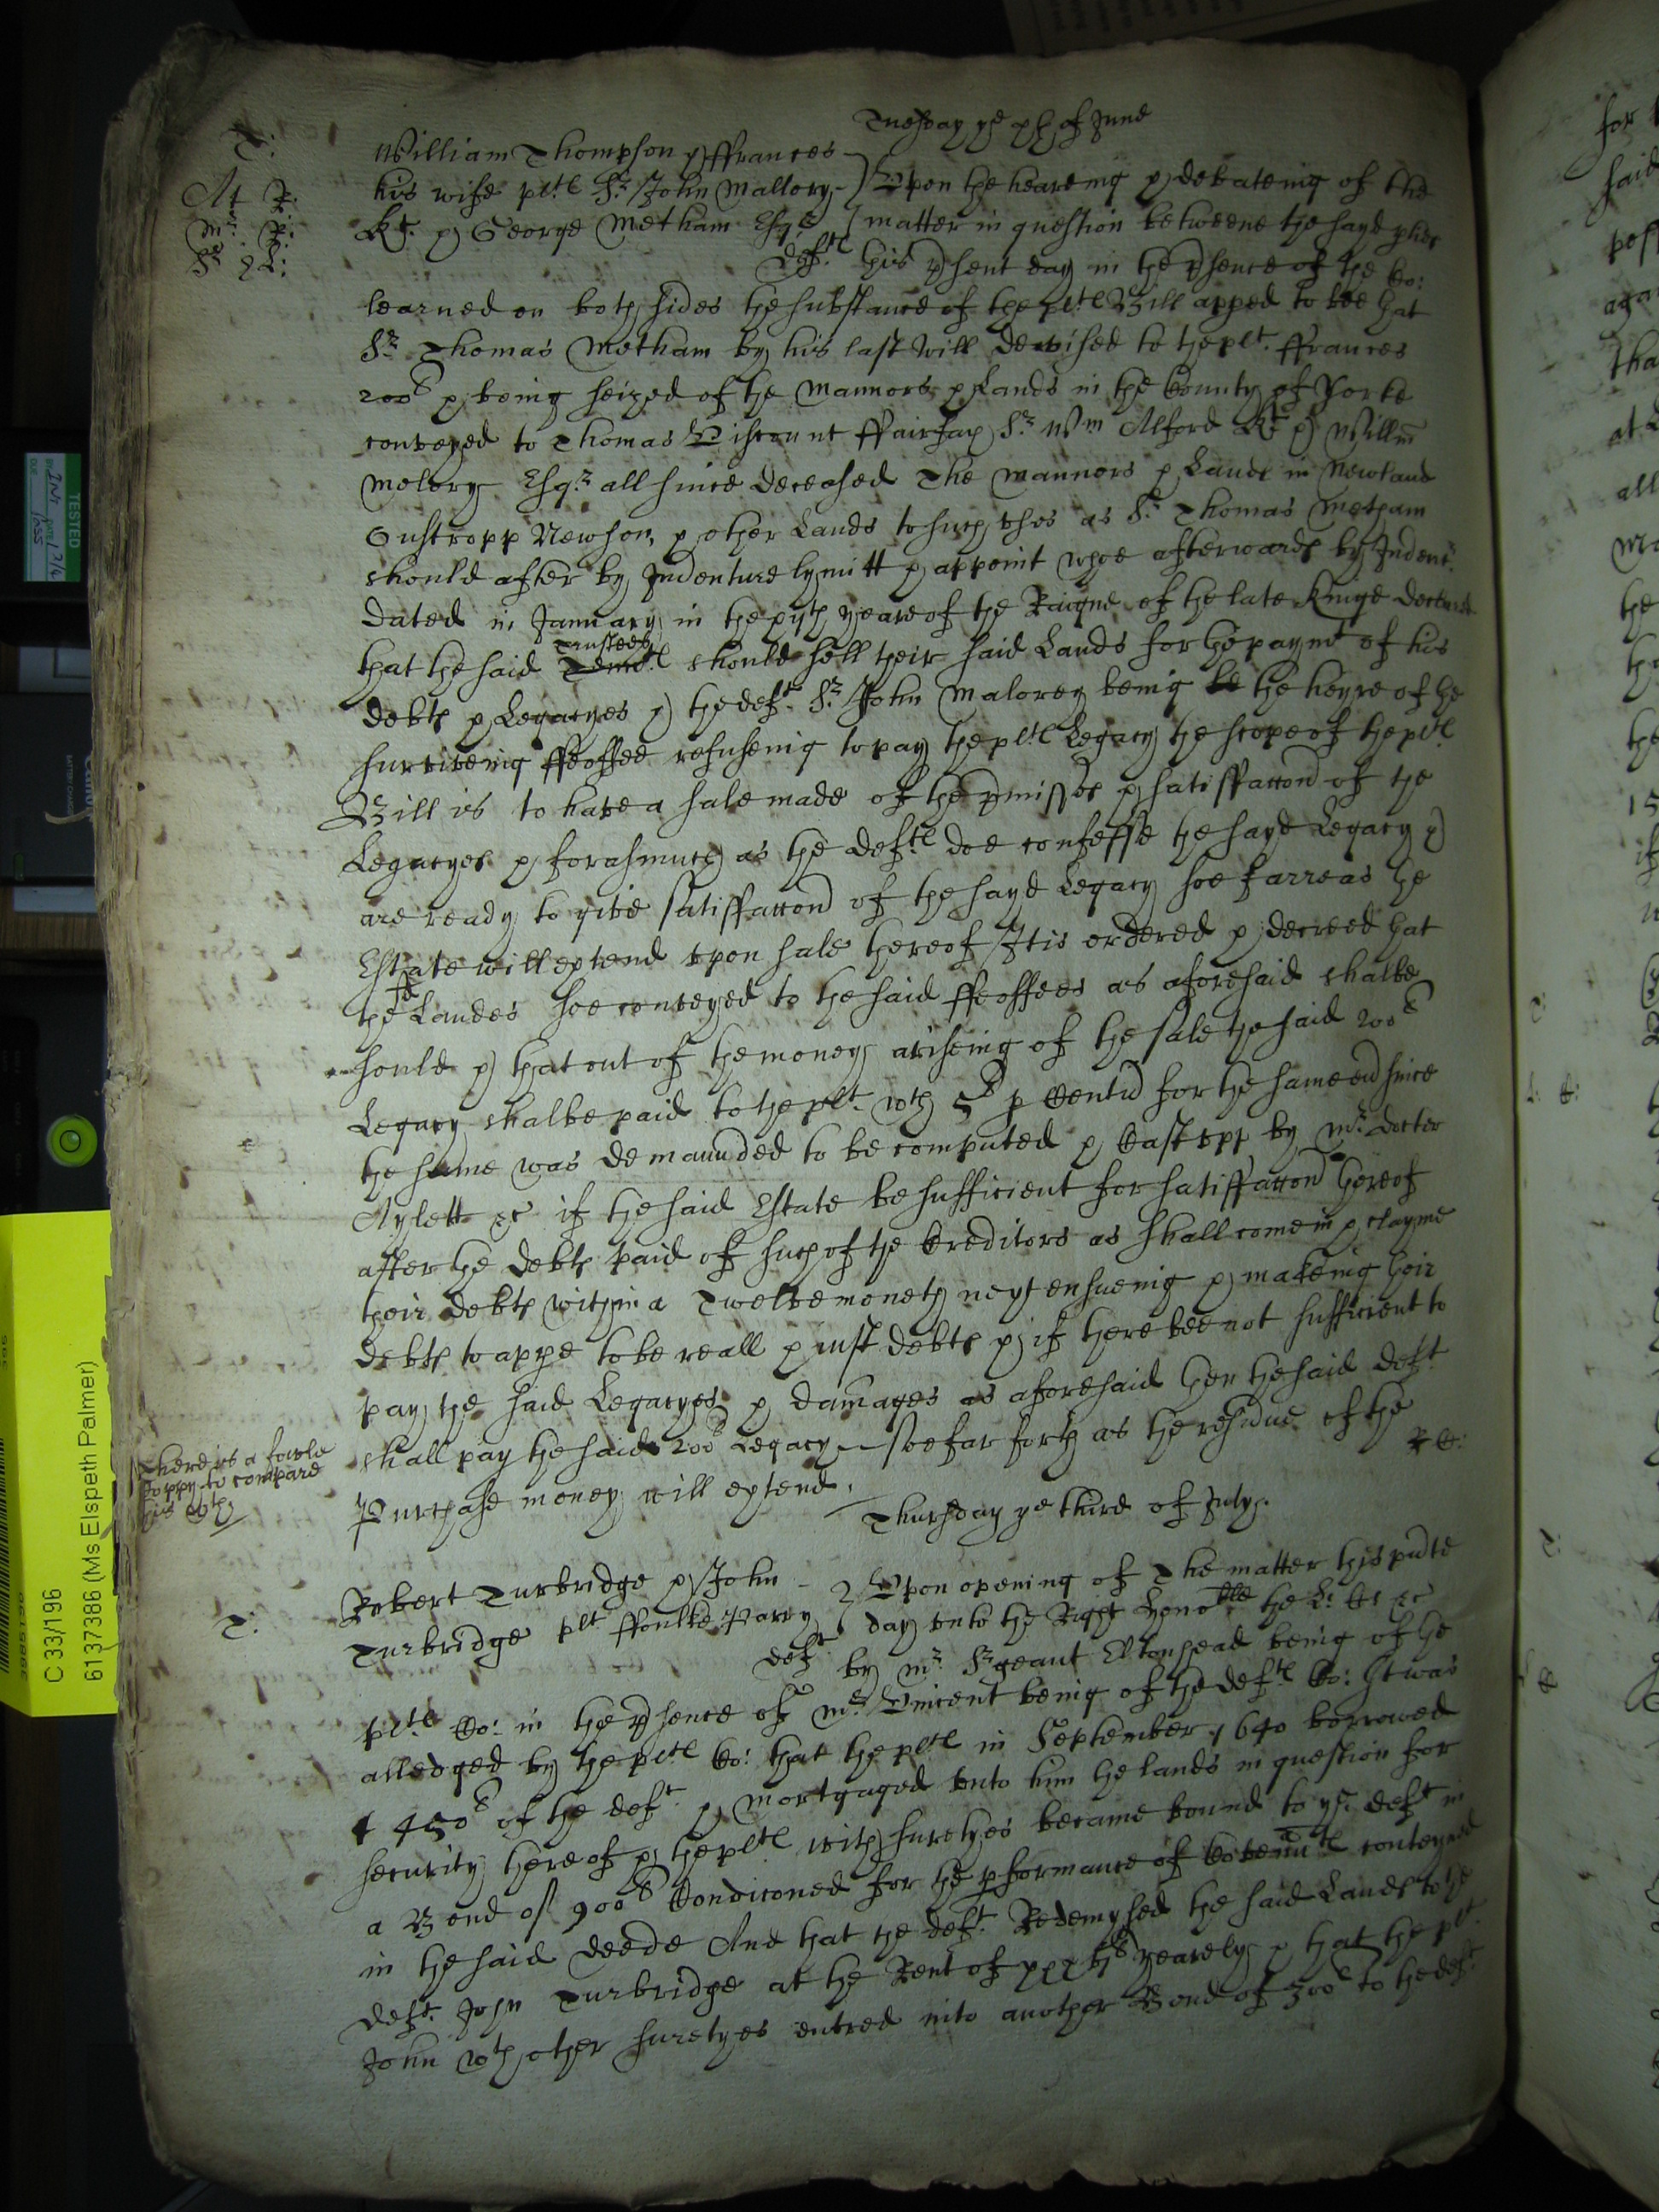 Tuesday ye xth of June
T:
William Thompson & ffrances
his wife plts Sr John Mallory
Kt. & George Metham Esqrs
deftes
Upon the heareing & debateing of the
matter in question betweene the sayd pties
this psent day in the psence of the Co:
learned on both sides the substance of the plts Bill apped to bee that
Sr Thomas Metham by his last Will devised to the plt. ffrances
200l & being seized of the Mannors & Lands in the County of Yorke
conveyed to Thomas Viscount ffairfax Sr Wm Alford Kt & Willm
Molory Esqr all since deceased The Mannors & Lands in Newland
Oustropp Newson & other Lands to such uses as Sr Thomas Metham
should after by Indenture lymitt & appoint whoe afterwards by Indentr
dated in January in the yeare of the Raigne of the late Kinge
that the said Trustees should sell their said Lands for the paymt of his
debts & Legacyes & the deft. Sr John Malorey being the heyre of the
surviveing ffeoffee refuseing to pay the plts Legacy the scope of the plts
Bill is to have a sale made of the pmisses & satisfaccon of the
Legacyes & forasmuch as the defts doe confesse the sayd Legacy &
are ready to give satisfaccon of the sayd Legacy soe farre as the
Estate will extend upon sale thereof It is ordered & decreed that
the sd Landes soe conveyed to the said ffeoffees as aforesaid shalbe
sould & that out of the moneys ariseing of the sale the said 200l
Legacy shalbe paid to the plt. wth 5l p Centu for the same end since
the same was demaunded to be computed & Cast upp by Mr Docter
Aylett &c if the said Estate be sufficient for satisfaccon thereof
after the debts paid of such of the Creditors as shall come in & clayme
their debts within a Twelve moneth next ensueing & makeing their
debts to appe to be reall & just debts & if there bee not sufficient to
pay the said Legacyes & damages as aforesaid then the said deft
shall pay the said 200l Legacy soe far forth as the residue of the
Purchase money will extend.
There is a
Coppy to compare
this wth
Thursday ye third of July.
T:
Robert Turbridge & John
Turbridge plt. ffoulke Parry
deft.
Upon opening of The matter this pnte
day unto the Right Honoble the L: &c
by Mr Srgeant Eltonhead being of the
plts Co: in the psence of Mr Vincent being of the defts Co: It was
alledged by the plts Co: that the plts in September 1640 borrowed
450l of the deft. & mortgaged unto him the lands in question for
security thereof & the plts with suretyes became bound to ye deft in
a Bond of 900l Condiconed for the pformance of Covenants conteyned
in the said deede And that the deft. Redemysed the said Lands to the
deft. John Turbridge at the Rent of yearely & that the plt.
John wth other suretyes entred into another Bond of 300l to the deft.
TESTED
C 33/196
6137386 (Ms Elspeth Palmer)